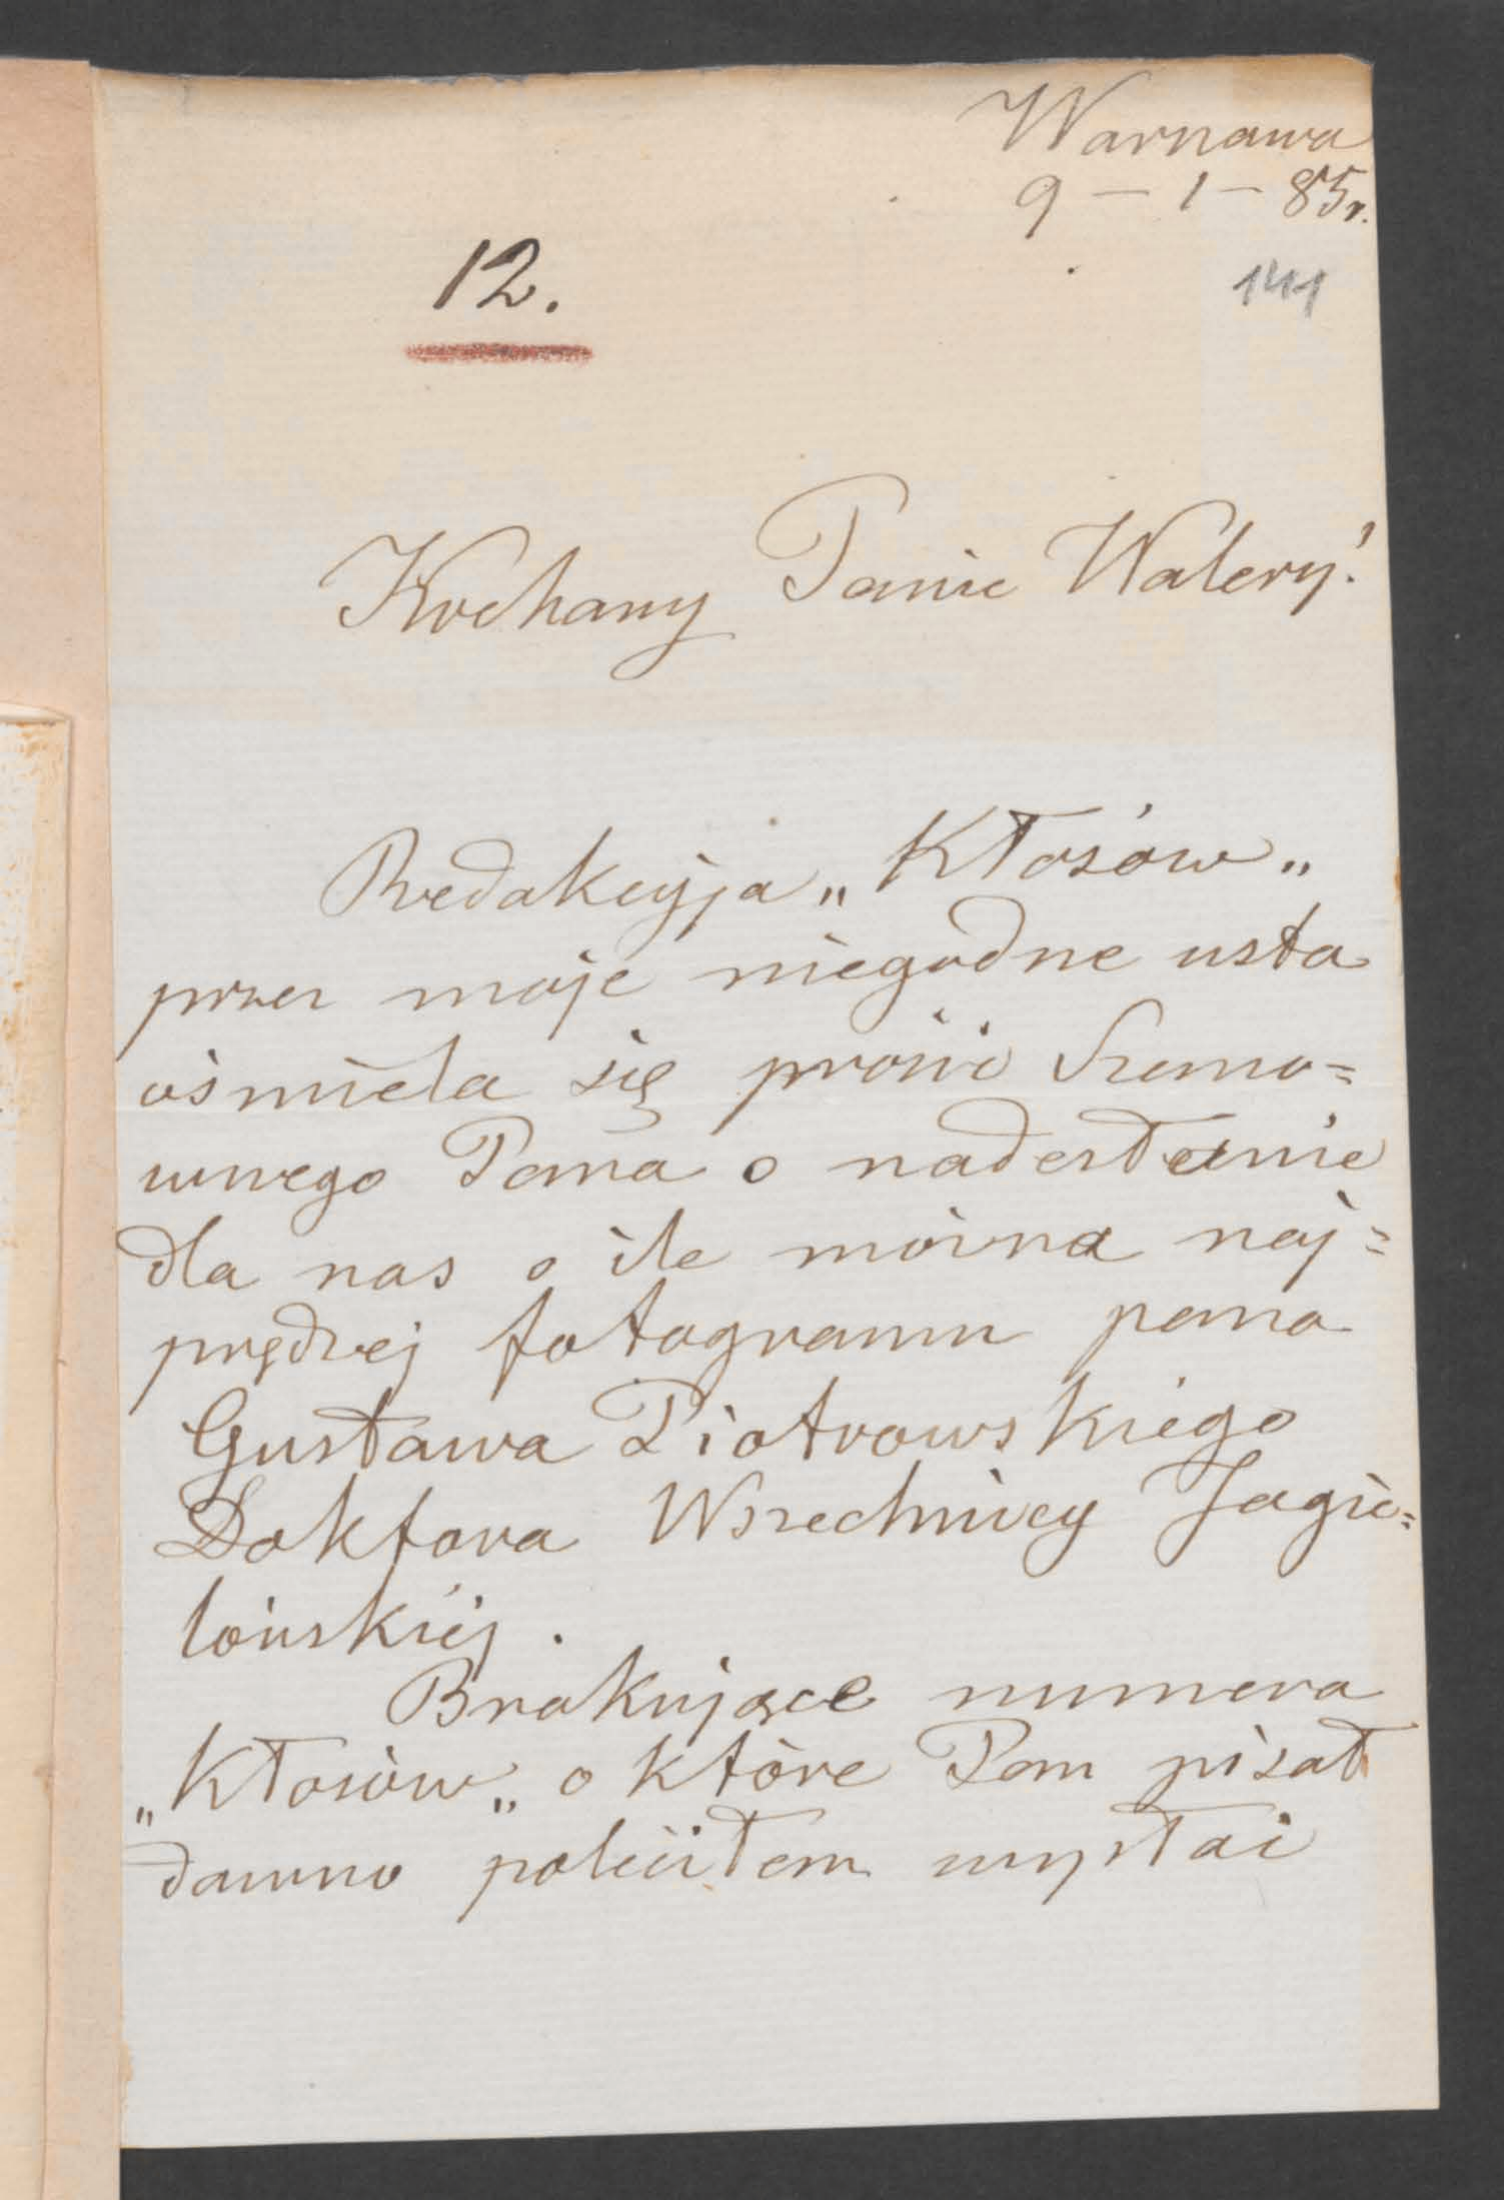 Warszawa
9 – 1 – 85 r.
141
12.
Kochany Panie Walery!
Redakcyja „Kłosów„
przez moje niegodne usta
ośmiela się prosić Szano=
wnego Pana o nadesłanie
dla nas o ile można naj=
prędzej fotogramu pana
Gustawa Piotrowskiego
Doktora Wszechnicy Jagie=
lońskiéj.
Brakujące numera
„Kłosów„ o które Pan pisał
dawno poleciłem wysłać